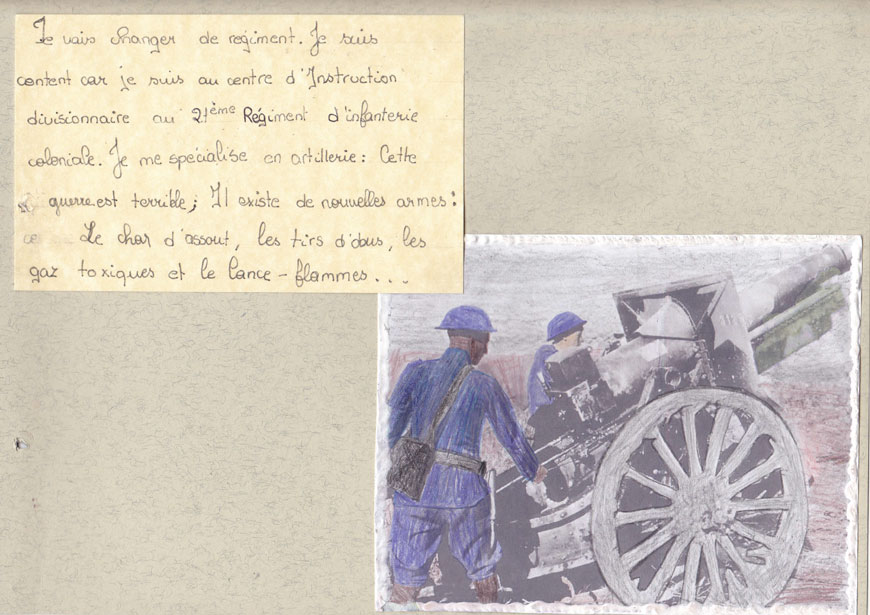 Je vais changer de regiment. Je suis
content car je suis au centre d'Instruction
divisionnaire au 21ème Régiment d'infanterie
coloniale. Je me spécialise en artillerie : Cette
guerre est terrible ; Il existe de nouvelles armes :
Le char d'assout, les tirs d'obus, les
gaz toxiques et le lance - flammes...